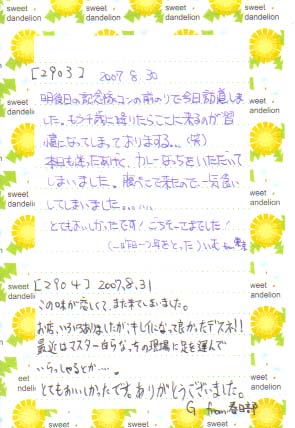 sweet dandelion
[2903] 2007.8.30
明後日の記念塚コンの前のりで今日訪道しま
した。もう千歳に降りたらここに来るのが習
慣になってしまっております。。(笑)
本日も迷ったあげく、カレーなっちをいただいて
しまいました。腹ぺこで来たので、一気食い
してしまいました。。。。。
とてもおいしかったです！ごちそーさまでした！
[2904] 2007.8.31
この味が恋しくて、また来てしまいました。
お店、いろいろありましたが、キレイになって良かったデスネ!!
最近はマスター自らな、ちの現場に足を運んで
いらっしゃるとか…。
とてもおいしかったです。ありがとうございました。
G from 春日部